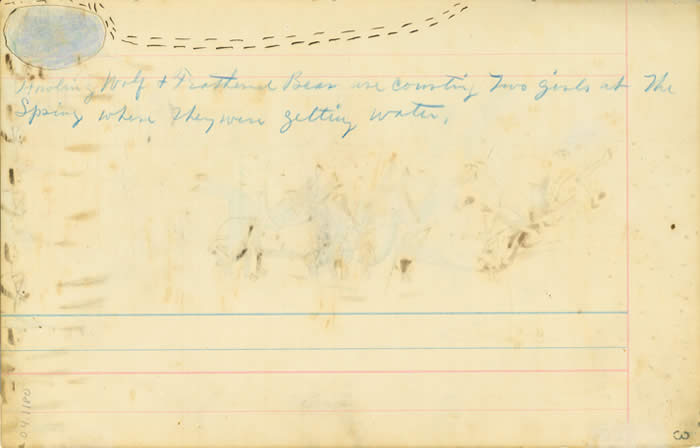 Howling Wolf + Feathered Bear are courting Two girls at The
Spring where They were getting water.
04.1180
3